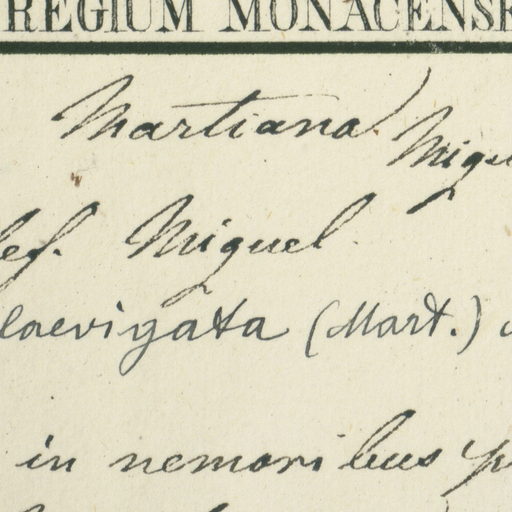 REGIUM MONACENSE
Martiana Miqu
def. Miquel.
laevigata (Mart.)
in nemoribus